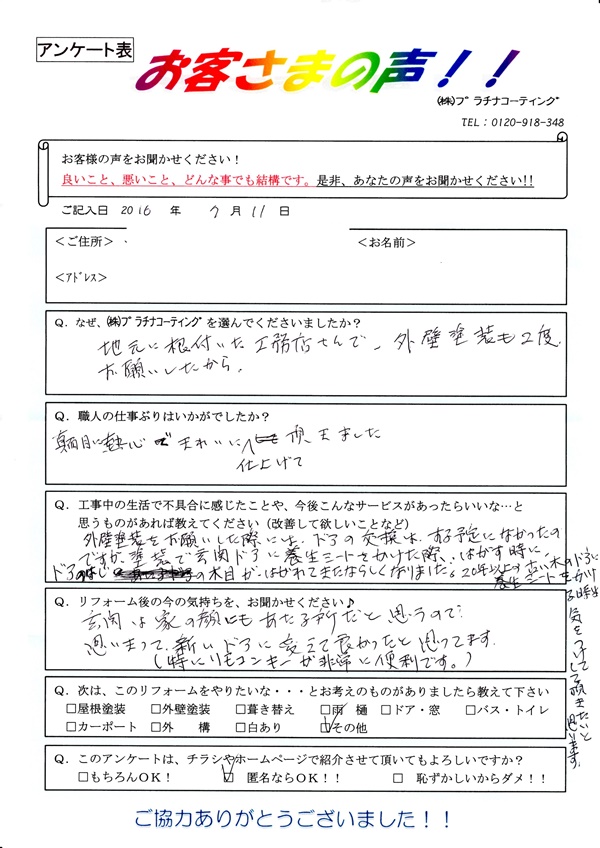 アンケート表
お客さまの声！！
㈱プラチナコーティング
TEL：0120-918-348
お客様の声をお聞かせください！
良いこと、悪いこと、どんな事でも結構です。是非、あなたの声をお聞かせください!!
ご記入日 2016 年 7 月 11 日
＜ご住所＞ ＜お名前＞
＜アドレス＞
Q．なぜ、㈱プラチナコーティングを選んでくださいましたか？
地元に根付いた工務店さんで、外壁塗装も2度
お願いしたから。
Q．職人の仕事ぶりはいかがでしたか？
真面目に熱心できれいに 頂きました
仕上げて
Q．工事中の生活で不具合に感じたことや、今後こんなサービスがあったらいいな…と
思うものがあれば教えてください（改善して欲しいことなど）
外壁塗装をお願いした際には、ドアの交換は、する予定になかったの
ですが、塗装で玄関ドアに養生シートをかけた際、はがす時に
ドアの の木目が、はがれてきたならしくなりました。20年以上の古い木のドアに
養生シートをかけ
る時は
気をつけて頂きたいと
思います。
Q．リフォーム後の今の気持ちを、お聞かせください♪
玄関は家の顔にもあたる所だと思うので、
思いきって、新しいドアに変えて良かったと思ってます。
（特にリモコンキーが非常に便利です。）
Q．次は、このリフォームをやりたいな・・・とお考えのものがありましたら教えて下さい
□屋根塗装 □外壁塗装 □葺き替え □雨　樋 □ドア・窓 □バス・トイレ
□カーポート □外　構 □白あり ☑その他
Q．このアンケートは、チラシやホームページで紹介させて頂いてもよろしいですか？
□もちろんOK！ ☑ 匿名ならOK！！ □ 恥ずかしいからダメ！！
ご協力ありがとうございました！！